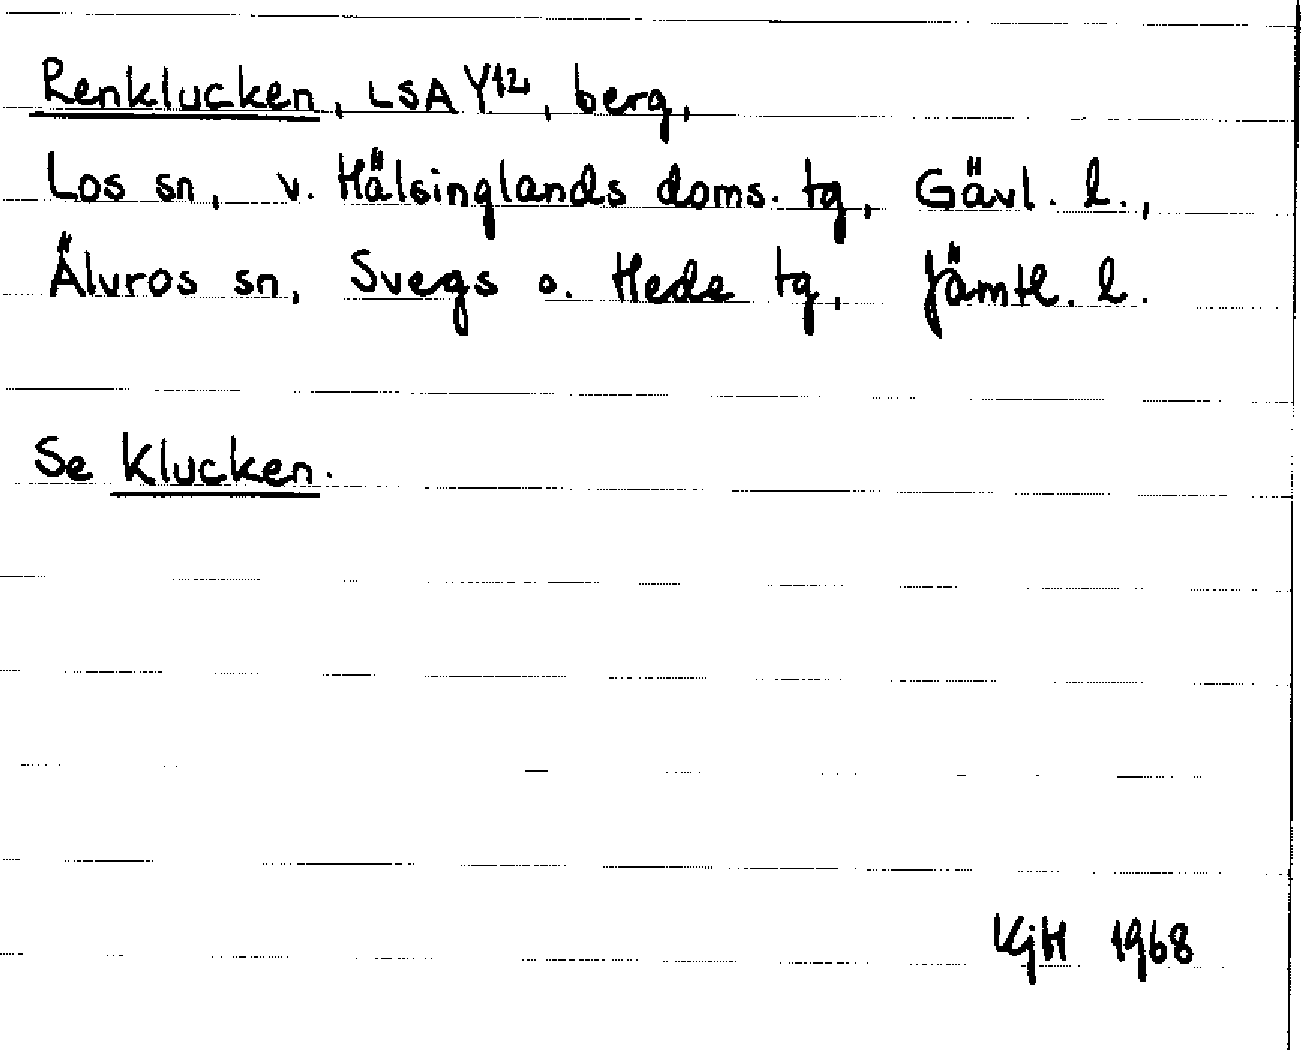 Renklucken, LSA Y12, berg,
Los sn, v. Hälsinglands doms. tg, Gävl. l.,
Älvros sn, Svegs o. Hede tg, Jämtl. l.
Se Klucken.
KjH 1968